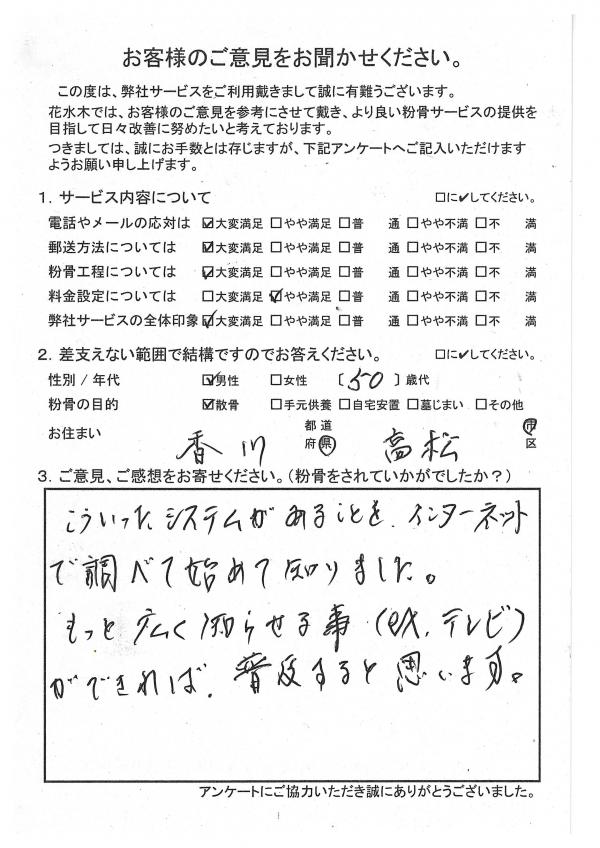 お客様のご意見をお聞かせください。
この度は、弊社サービスをご利用戴きまして誠に有難うございます。
花水木では、お客様のご意見を参考にさせて戴き、より良い粉骨サービスの提供を
目指して日々改善に努めたいと考えております。
つきましては、誠にお手数とは存じますが、下記アンケートへご記入いただけます
ようお願い申し上げます。
1. サービス内容について □に✔してください。
電話やメールの応対は ☑大変満足 □やや満足 □普 通 □やや不満 □不 満
郵送方法については ☑大変満足 □やや満足 □普 通 □やや不満 □不 満
粉骨工程については ☑大変満足 □やや満足 □普 通 □やや不満 □不 満
料金設定については □大変満足 ☑やや満足 □普 通 □やや不満 □不 満
弊社サービスの全体印象 ☑大変満足 □やや満足 □普 通 □やや不満 □不 満
2. 差支えない範囲で結構ですのでお答えください。 □に✔してください。
性別 / 年代 ☑男性 □女性 〔 50 〕歳代
粉骨の目的 ☑散骨 □手元供養 □自宅安置 □墓じまい □その他
お住まい 香川 都道府県 高松 市区
3. ご意見、ご感想をお寄せください。(粉骨をされていかがでしたか?)
こういったシステムがあることを、インターネット
で調べて始めて知りました。
もっと広く知らせる事(ex,テレビ)
ができれば、普及すると思います。
アンケートにご協力いただき誠にありがとうございました。